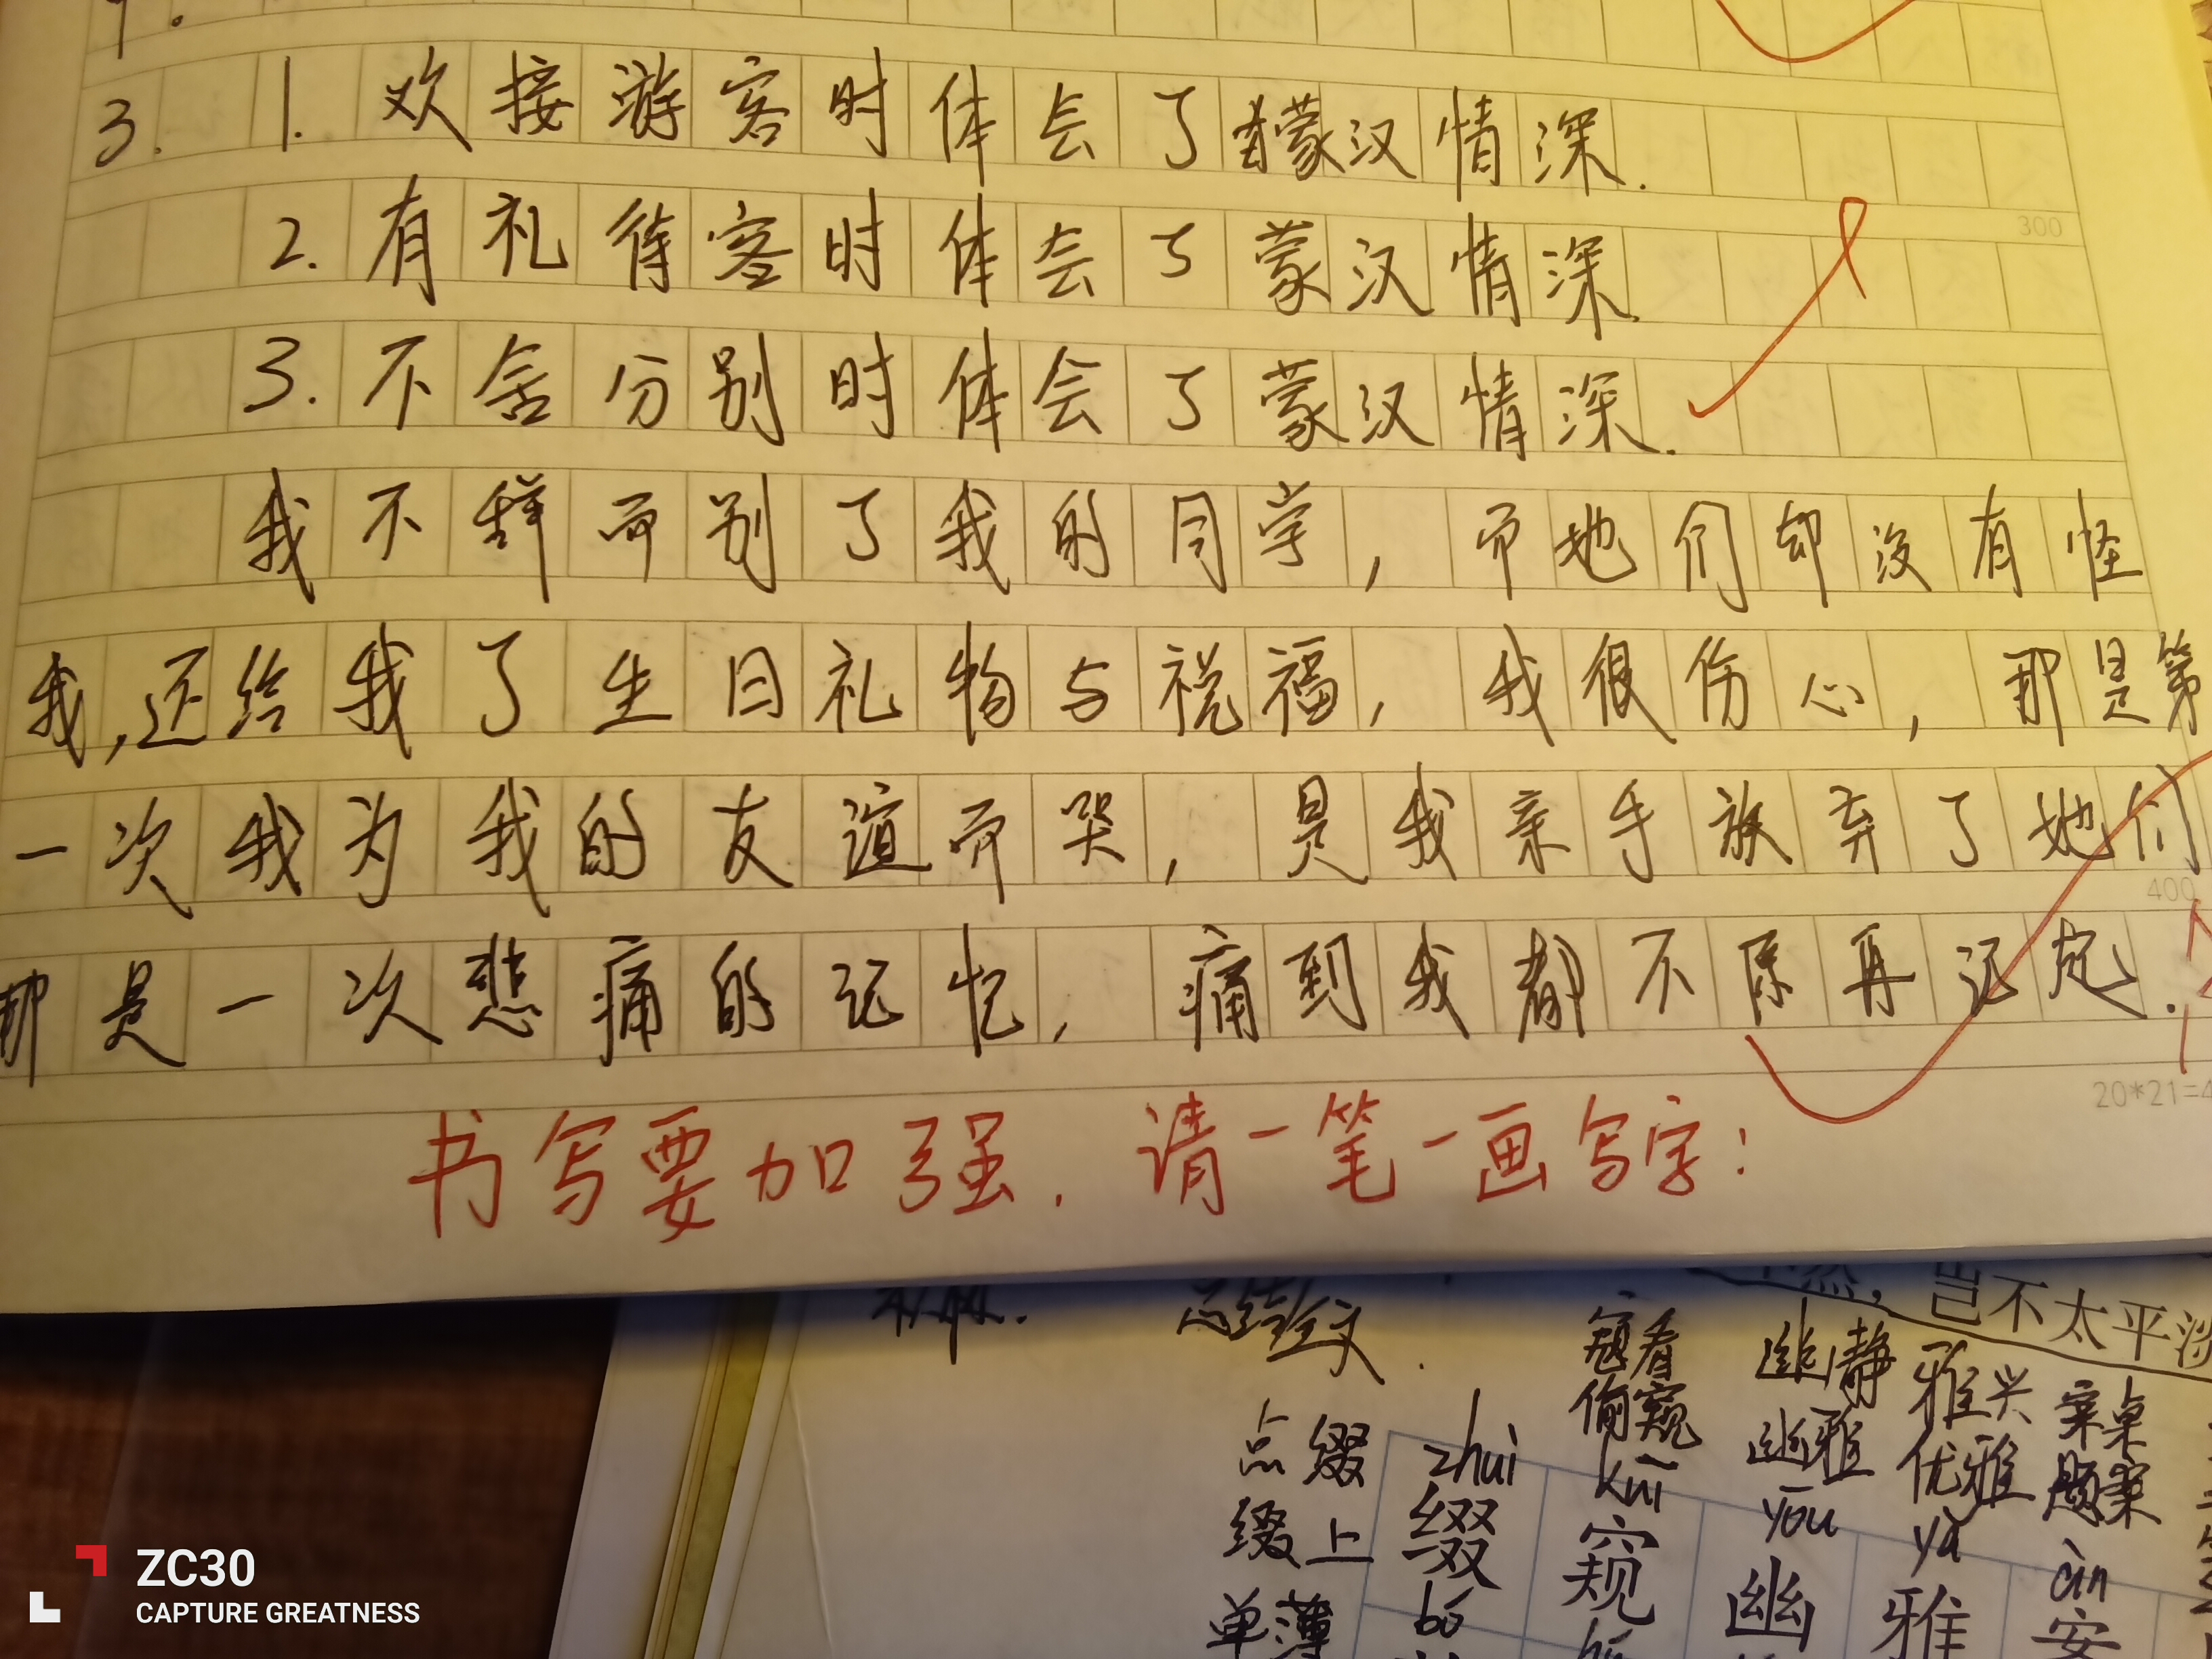 3. 1. 欢接游客时体会了蒙汉情深.
300
2. 有礼待客时体会了蒙汉情深.
3. 不舍分别时体会了蒙汉情深.
我不辞而别了我的同学,而她们却没有怪
我,还给我了生日礼物与祝福,我很伤心,那是第
一次我为我的友谊而哭,是我亲手放弃了她们
400
那是一次悲痛的记忆,痛到我都不愿再记起.
20*21=4
书写要加强.请一笔一画写字!
岂不太平淡
总结全文.
窥看 幽静 雅兴 案桌
偷窥 幽雅 优雅
点缀 zhuì kuī yōu yǎ àn
缀上 缀 窥 幽 雅 案
单薄 bó
ZC30
CAPTURE GREATNESS